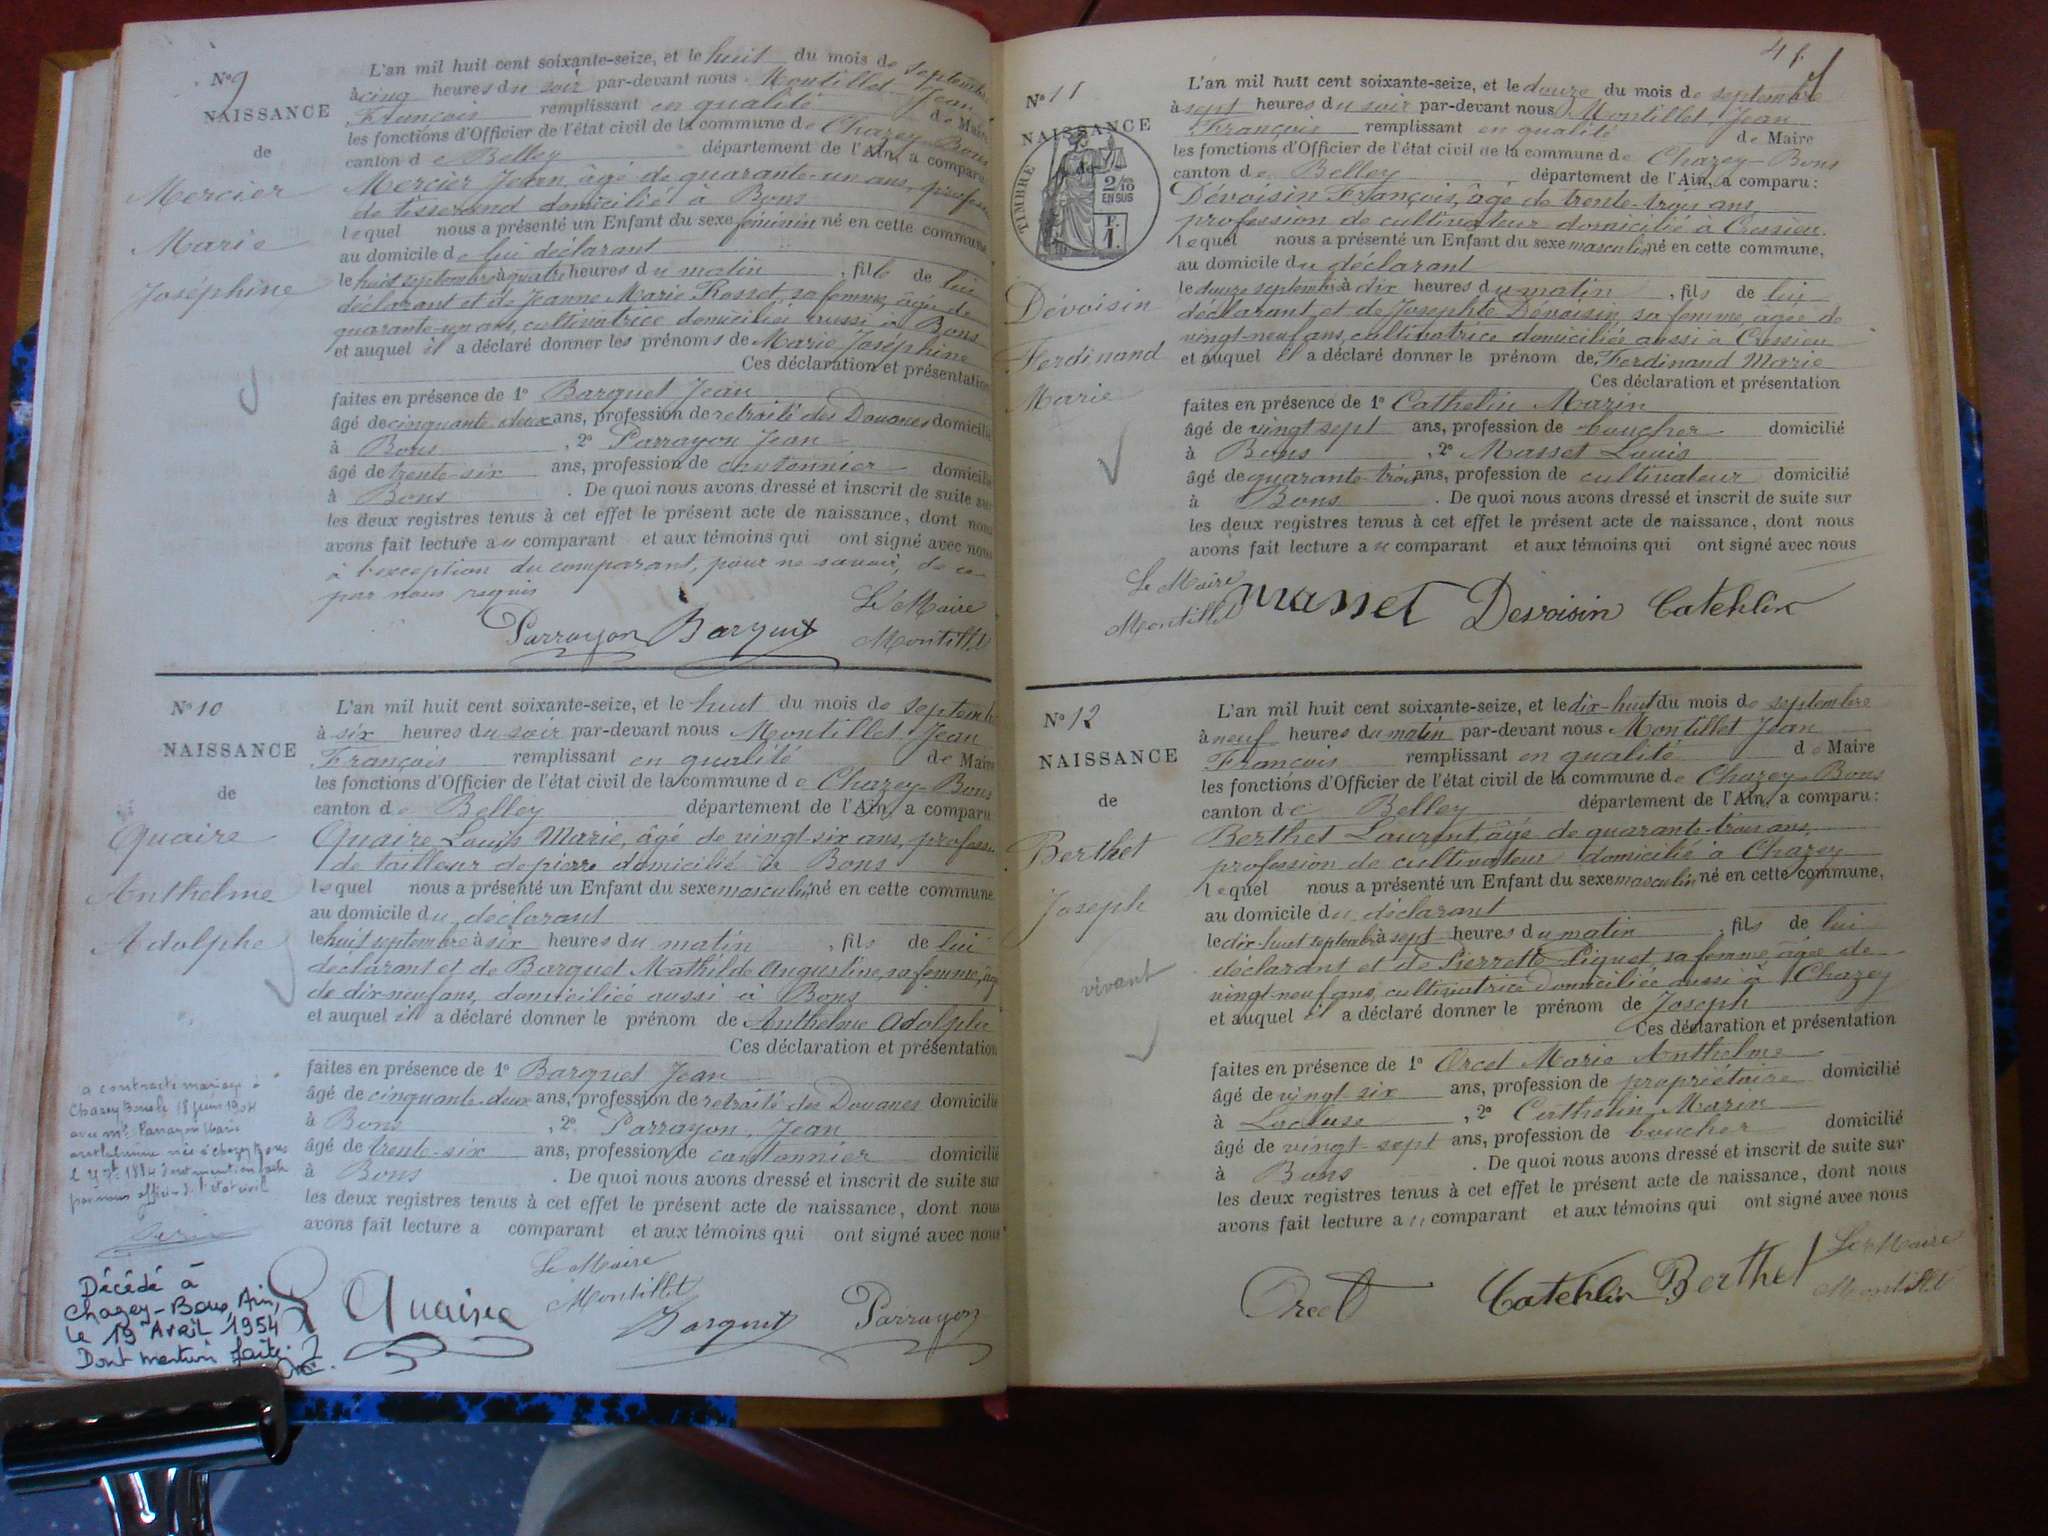 N° 9
NAISSANCE
de
Mercier
Marie
Joséphine
L'an mil huit cent soixante-seize, et le huit du mois de septembre
à cinq heures du soir par-devant nous Montillet Jean
François remplissant en qualité de Maire
les fonctions d'Officier de l'état civil de la commune de Chazey-Bons
canton de Belley département de l'Ain, a comparu
Mercier Jean, âgé de quarante-un ans, profession
de tisserand domicilié à Bons
lequel nous a présenté un Enfant du sexe féminin né en cette commune,
au domicile de lui déclarant
le huit septembre à quatre heures du matin, fille de lui
déclarant et de Jeanne Marie Rosset sa femme, âgée de
quarante-un ans, cultivatrice domiciliée aussi à Bons
et auquel il a déclaré donner les prénoms de Marie Joséphine
Ces déclaration et présentation
faites en présence de 1° Barquet Jean
âgé de cinquante deux ans, profession de retraité des Douanes domicilié
à Bons, 2° Parrayon Jean
âgé de trente-six ans, profession de cantonnier domicilié
à Bons. De quoi nous avons dressé et inscrit de suite sur
les deux registres tenus à cet effet le présent acte de naissance, dont nous
avons fait lecture au comparant et aux témoins qui ont signé avec nous
à l'exception du comparant, pour ne savoir, de ce
par nous requis
Le Maire
Parrayon Barquet Montillet
N° 10
NAISSANCE
de
Quaire
Anthelme
Adolphe
L'an mil huit cent soixante-seize, et le huit du mois de septembre
à six heures du soir par-devant nous Montillet Jean
François remplissant en qualité de Maire
les fonctions d'Officier de l'état civil de la commune de Chazey-Bons
canton de Belley département de l'Ain, a comparu
Quaire Louis Marie, âgé de vingt-six ans, profession
de tailleur de pierre domicilié à Bons
lequel nous a présenté un Enfant du sexe masculin né en cette commune,
au domicile du déclarant
le huit septembre à six heures du matin, fils de lui
déclarant et de Barquet Mathilde Augustine, sa femme, âgée
de dix-neuf ans, domiciliée aussi à Bons
et auquel il a déclaré donner le prénom de Anthelme Adolphe
Ces déclaration et présentation
faites en présence de 1° Barquet Jean
âgé de cinquante-deux ans, profession de retraité des Douanes domicilié
à Bons, 2° Parrayon Jean
âgé de trente-six ans, profession de cantonnier domicilié
à Bons. De quoi nous avons dressé et inscrit de suite sur
les deux registres tenus à cet effet le présent acte de naissance, dont nous
avons fait lecture a comparant et aux témoins qui ont signé avec nous
Le Maire
Montillet
Quaire Barquet Parrayon
a contracté mariage à
Chazey Bons le 18 juin 1904
avec Parrayon Marie
née à Chazey Bons
1884 dont mention faite
par nous officier de l'état civil
Décédé à
Chazey-Bons, Ain,
le 19 Avril 1954
Dont mention faite.
41
N° 11
NAISSANCE
de
TIMBRE
2/10
EN SUS
F.
1.
Dévoisin
Ferdinand
Marie
L'an mil huit cent soixante-seize, et le douze du mois de septembre
à sept heures du soir par-devant nous Montillet Jean
François remplissant en qualité de Maire
les fonctions d'Officier de l'état civil de la commune de Chazey-Bons
canton de Belley département de l'Ain, a comparu :
Dévoisin François, âgé de trente-trois ans
profession de cultivateur domicilié à Cressieu
lequel nous a présenté un Enfant du sexe masculin né en cette commune,
au domicile du déclarant
le douze septembre à dix heures du matin, fils de lui
déclarant et de Josephte Dévoisin sa femme agée de
vingt-neuf ans, cultivatrice domiciliée aussi à Cressieu
et auquel il a déclaré donner le prénom de Ferdinand Marie
Ces déclaration et présentation
faites en présence de 1° Cathelin Marin
âgé de vingt sept ans, profession de boucher domicilié
à Bons, 2° Masset Louis
âgé de quarante-trois ans, profession de cultivateur domicilié
à Bons. De quoi nous avons dressé et inscrit de suite sur
les deux registres tenus à cet effet le présent acte de naissance, dont nous
avons fait lecture au comparant et aux témoins qui ont signé avec nous
Le Maire
Montillet masset Devoisin Catehlin
N° 12
NAISSANCE
de
Berthet
Joseph
vivant
L'an mil huit cent soixante-seize, et le dix-huit du mois de septembre
à neuf heures du matin par-devant nous Montillet Jean
François remplissant en qualité de Maire
les fonctions d'Officier de l'état civil de la commune de Chazey-Bons
canton de Belley département de l'Ain, a comparu :
Berthet Laurent, âgé de quarante-trois ans,
profession de cultivateur domicilié à Chazey
lequel nous a présenté un Enfant du sexe masculin né en cette commune,
au domicile du déclarant
le dix-huit septembre à sept heures du matin, fils de lui
déclarant et de Pierrette Piquet sa femme, âgée de
vingt-neuf ans, cultivatrice domiciliée aussi à Chazey
et auquel il a déclaré donner le prénom de Joseph
Ces déclaration et présentation
faites en présence de 1° Orcet Marie Anthelme
âgé de vingt-six ans, profession de propriétaire domicilié
à Lacluse, 2° Cathelin Marin
âgé de vingt-sept ans, profession de boucher domicilié
à Bons. De quoi nous avons dressé et inscrit de suite sur
les deux registres tenus à cet effet le présent acte de naissance, dont nous
avons fait lecture au comparant et aux témoins qui ont signé avec nous
Le Maire
Orcet Catehlin Berthet Montillet